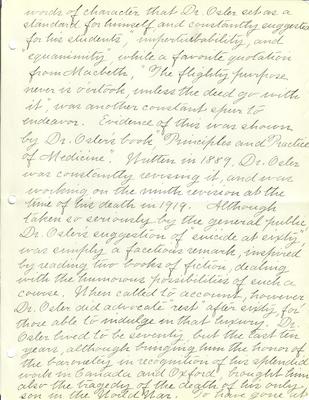 words of character that Dr. Osler set as a
standard for himself, and constantly suggested
for his students, "imperturbability, and
equanimity" while a favorite quotation
from Macbeth, "The flighty purpose
never is o'ertook, unless the deed go with
it" was another constant spur to
endeavor. Evidence of this was shown
by Dr. Osler's book, "Principles and Practice
of Medicine." Written in 1889, Dr. Osler
was constantly revising it, and was
working on the ninth revision at the
time of his death in 1919. Although
taken so seriously by the general public
Dr. Osler's suggestion of "suicide at sixty"
was simply a facetious remark, inspired
by reading two books of fiction, dealing
with the humorous possibilities of such a
course. When called to account, however
Dr. Osler did advocate "rest" after sixty, for
those able to indulge in that luxury. Dr.
Osler lived to be seventy but the last ten
years, although bringing him the honor of
the baronetcy in recognition of his splendid
work in Canada and Oxford, brought him
also the tragedy of the death of his only
son in the World War. To have gone at